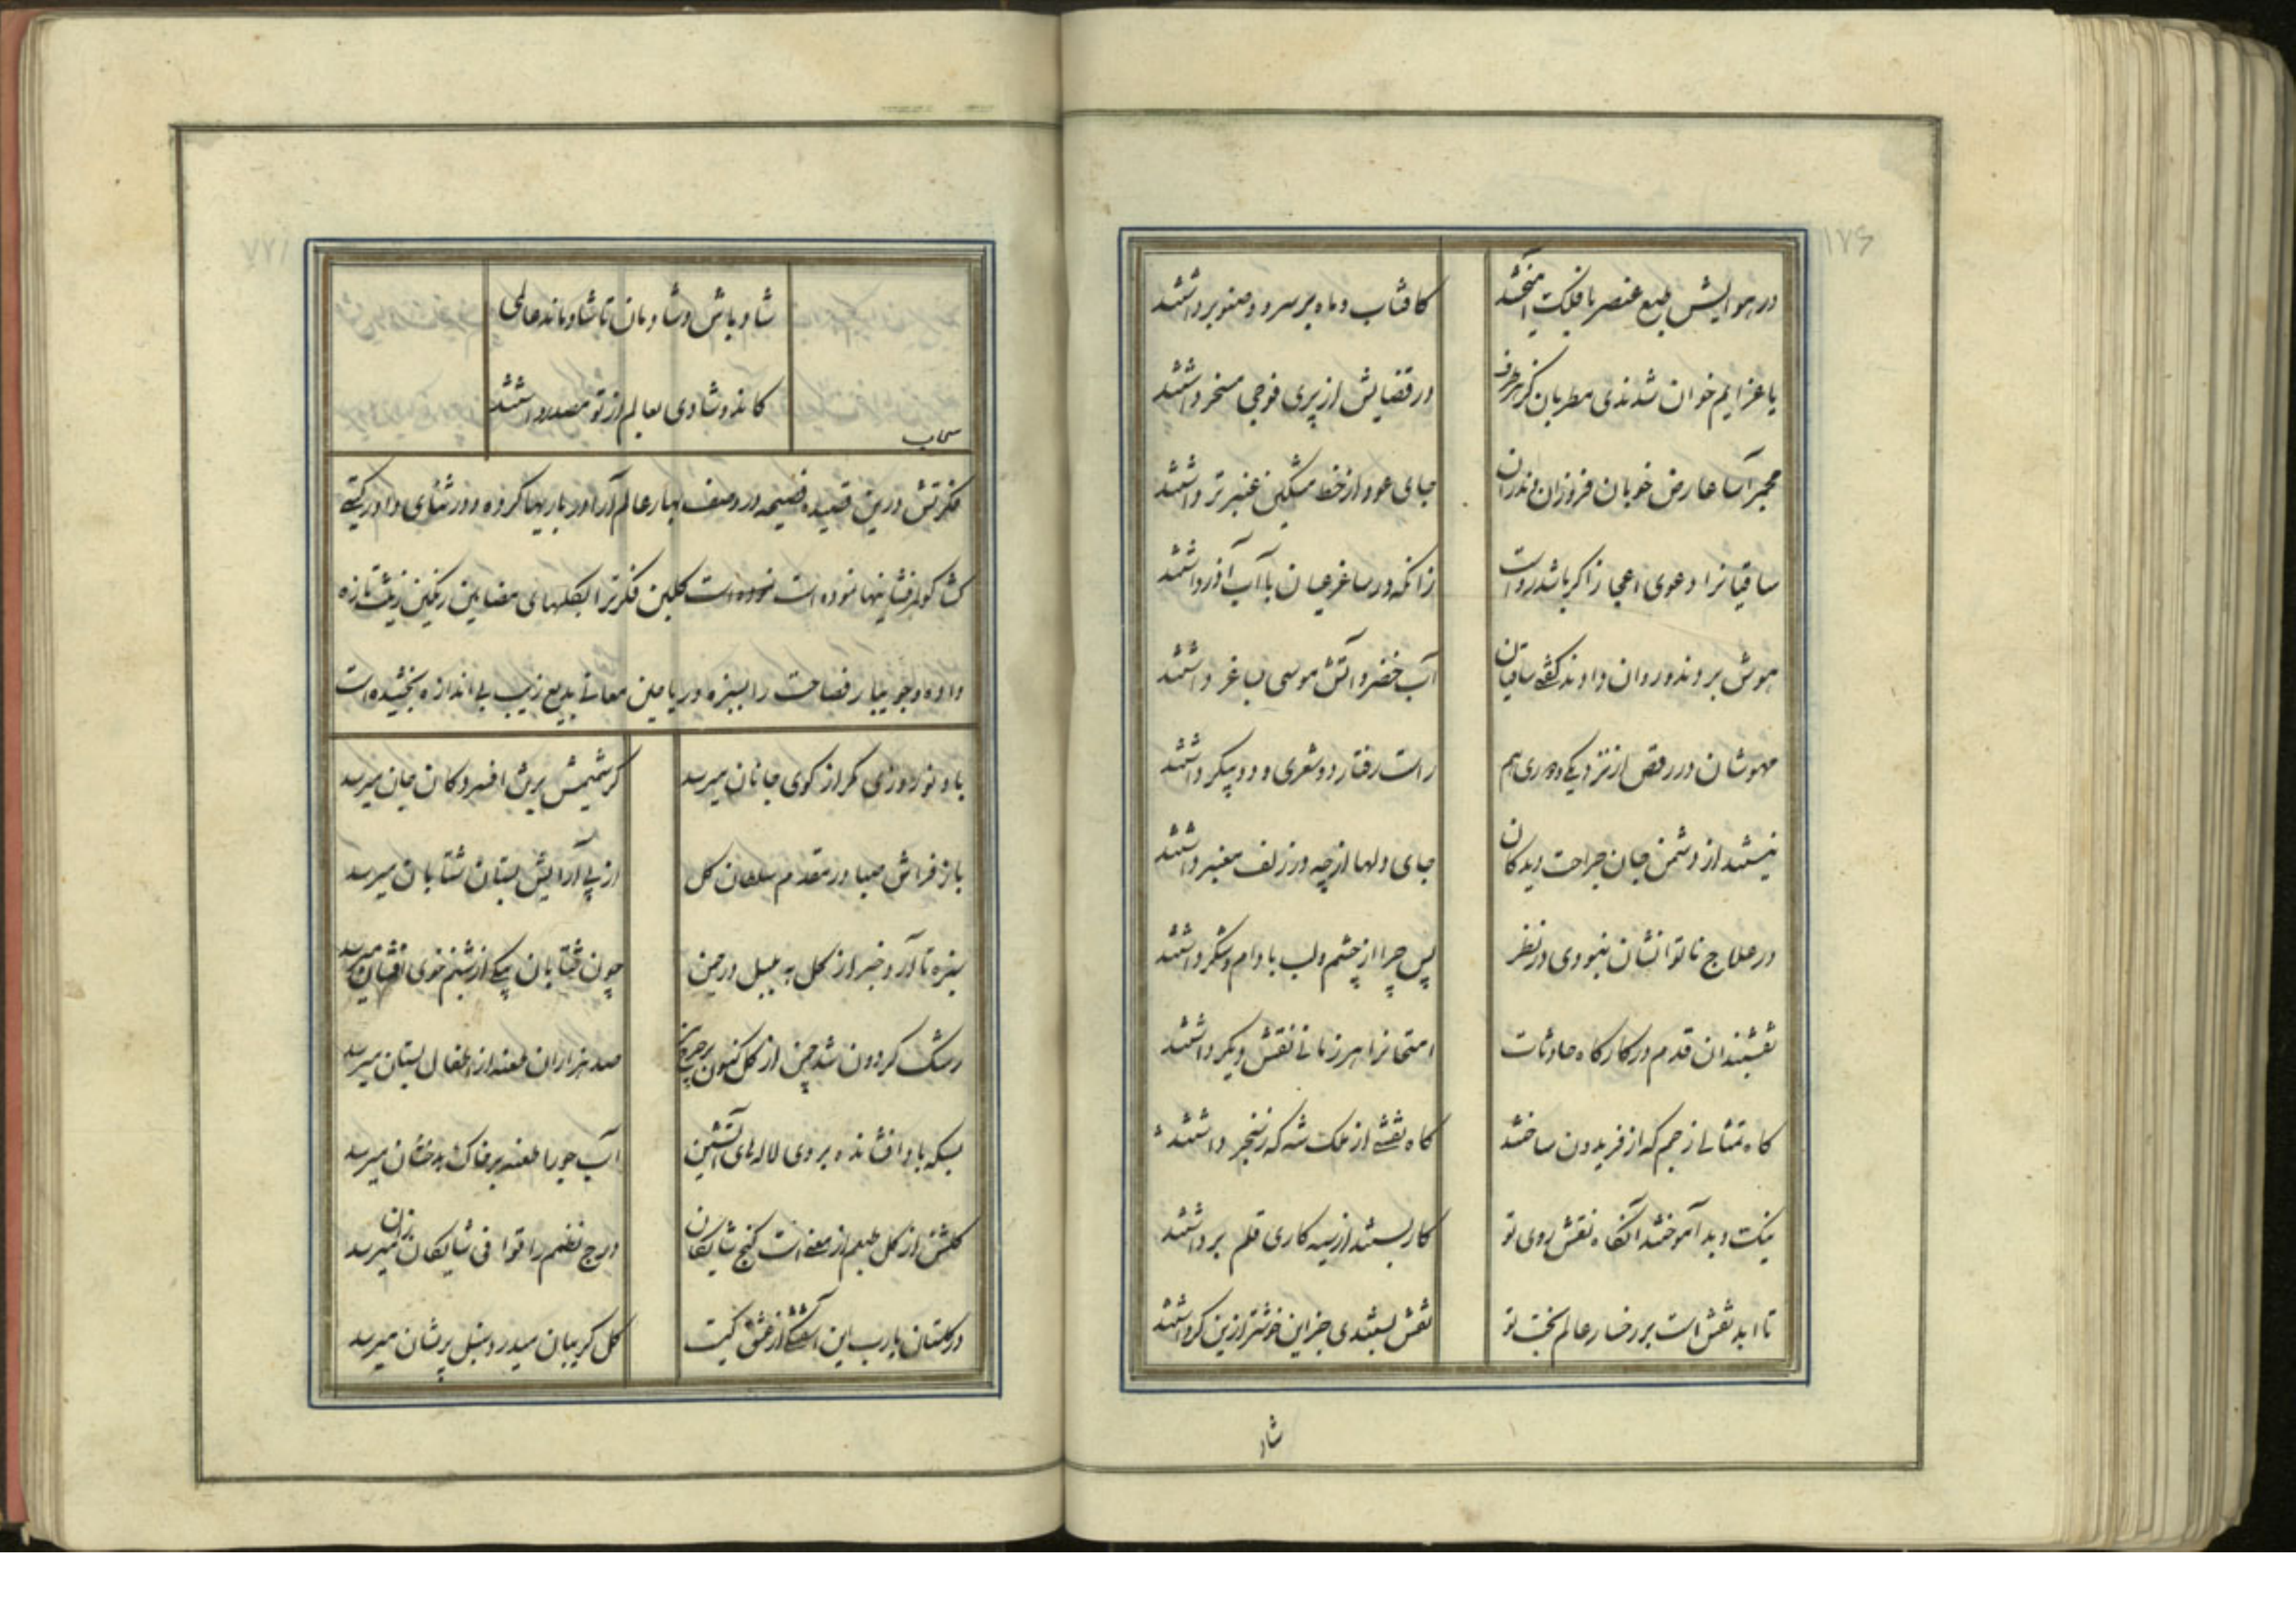 ۱۷۶
در هوایش طبع عنصر با فلک آمیختند
کافتاب و ماه بر سرو و صنوبر داشتند
یا عزایم خوان شدندی مطربان کز هر طرف
در قضایش از پری فوجی مسخر داشتند
مجمر آسا عارض خوبان فروزان وندران
جای عود از خط مشکین عنبر تر داشتند
ساقیانرا دعوی اعجاز اگر باشد رواست
زانکه در ساغر عیان با آب آذر داشتند
هوش بردند و روان دادند گفتی ساقیان
آب خضر و آتش موسی بساغر داشتند
مهوشان در رقص از نزدیکی و دوری هم
راست رفتار دو شعری و دو پیکر داشتند
نیستند از دشمن جان جراحت دیدگان
جای دلها از چه در زلف معنبر داشتند
در علاج ناتوانشان نبودی در نظر
پس چرا از چشم و لب بادام و شکر داشتند
نقشبندان قدم در کارگاه حادثات
امتحانرا هر زمانی نقش دیگر داشتند
گاه تمثالی ز جم که از فریدون ساختند
گاه نقشی از ملک شه که ز سنجر داشتند
نیک و بد آموختند آنگاه نقش روی تو
کار بستند از سیه کاری قلم برداشتند
تا ابد نقش است بر رخسار عالم بخت تو
نقش بستندی جز این خوشتر ازین گر داشتند
شاد
۱۷۷
شاد باش و شادمان تا شاد ماند عالمی
کانده و شادی بعالم از تو مصدر داشتند
سحاب
فکرتش درین قصیده فصیحه در وصف بهار عالم آرا درباریها کرده و در ثنای داور گیتی
گشا گوهرفشانیها نموده است گلبن فکرترا بگلهای مضامین رنگین زینت تازه
داده و جویبار فصاحت را بسبزه و ریاحین معانی بدیع زیب بی اندازه بخشیده است
باد نوروزی مگر از کوی جانان میرسد
کز شمیمش بر تن افسردگان جان میرسد
باز فراش صبا در مقدم سلطان گل
از پی آرایش بستان شتابان میرسد
سبزه تا آرد خبر از گل به بلبل در چمن
چون شتابان پیکی از شبنم خوی افشان میرسد
رشک گردون شد چمن از گل کنون بر چرخ
صد هزاران طعنه از اطفال بستان میرسد
بسکه باد افشانده بر وی لاله های آتشین
آب جو را طعنه بر خاک بدخشان میرسد
گلشن از گل طبعم از معنی است گنج شایگان
درج نظمم را قوافی شایگان زان میرسد
در گلستان یارب این آشفتگی از عشق کیست
گل گریبان میدرد سنبل پریشان میرسد